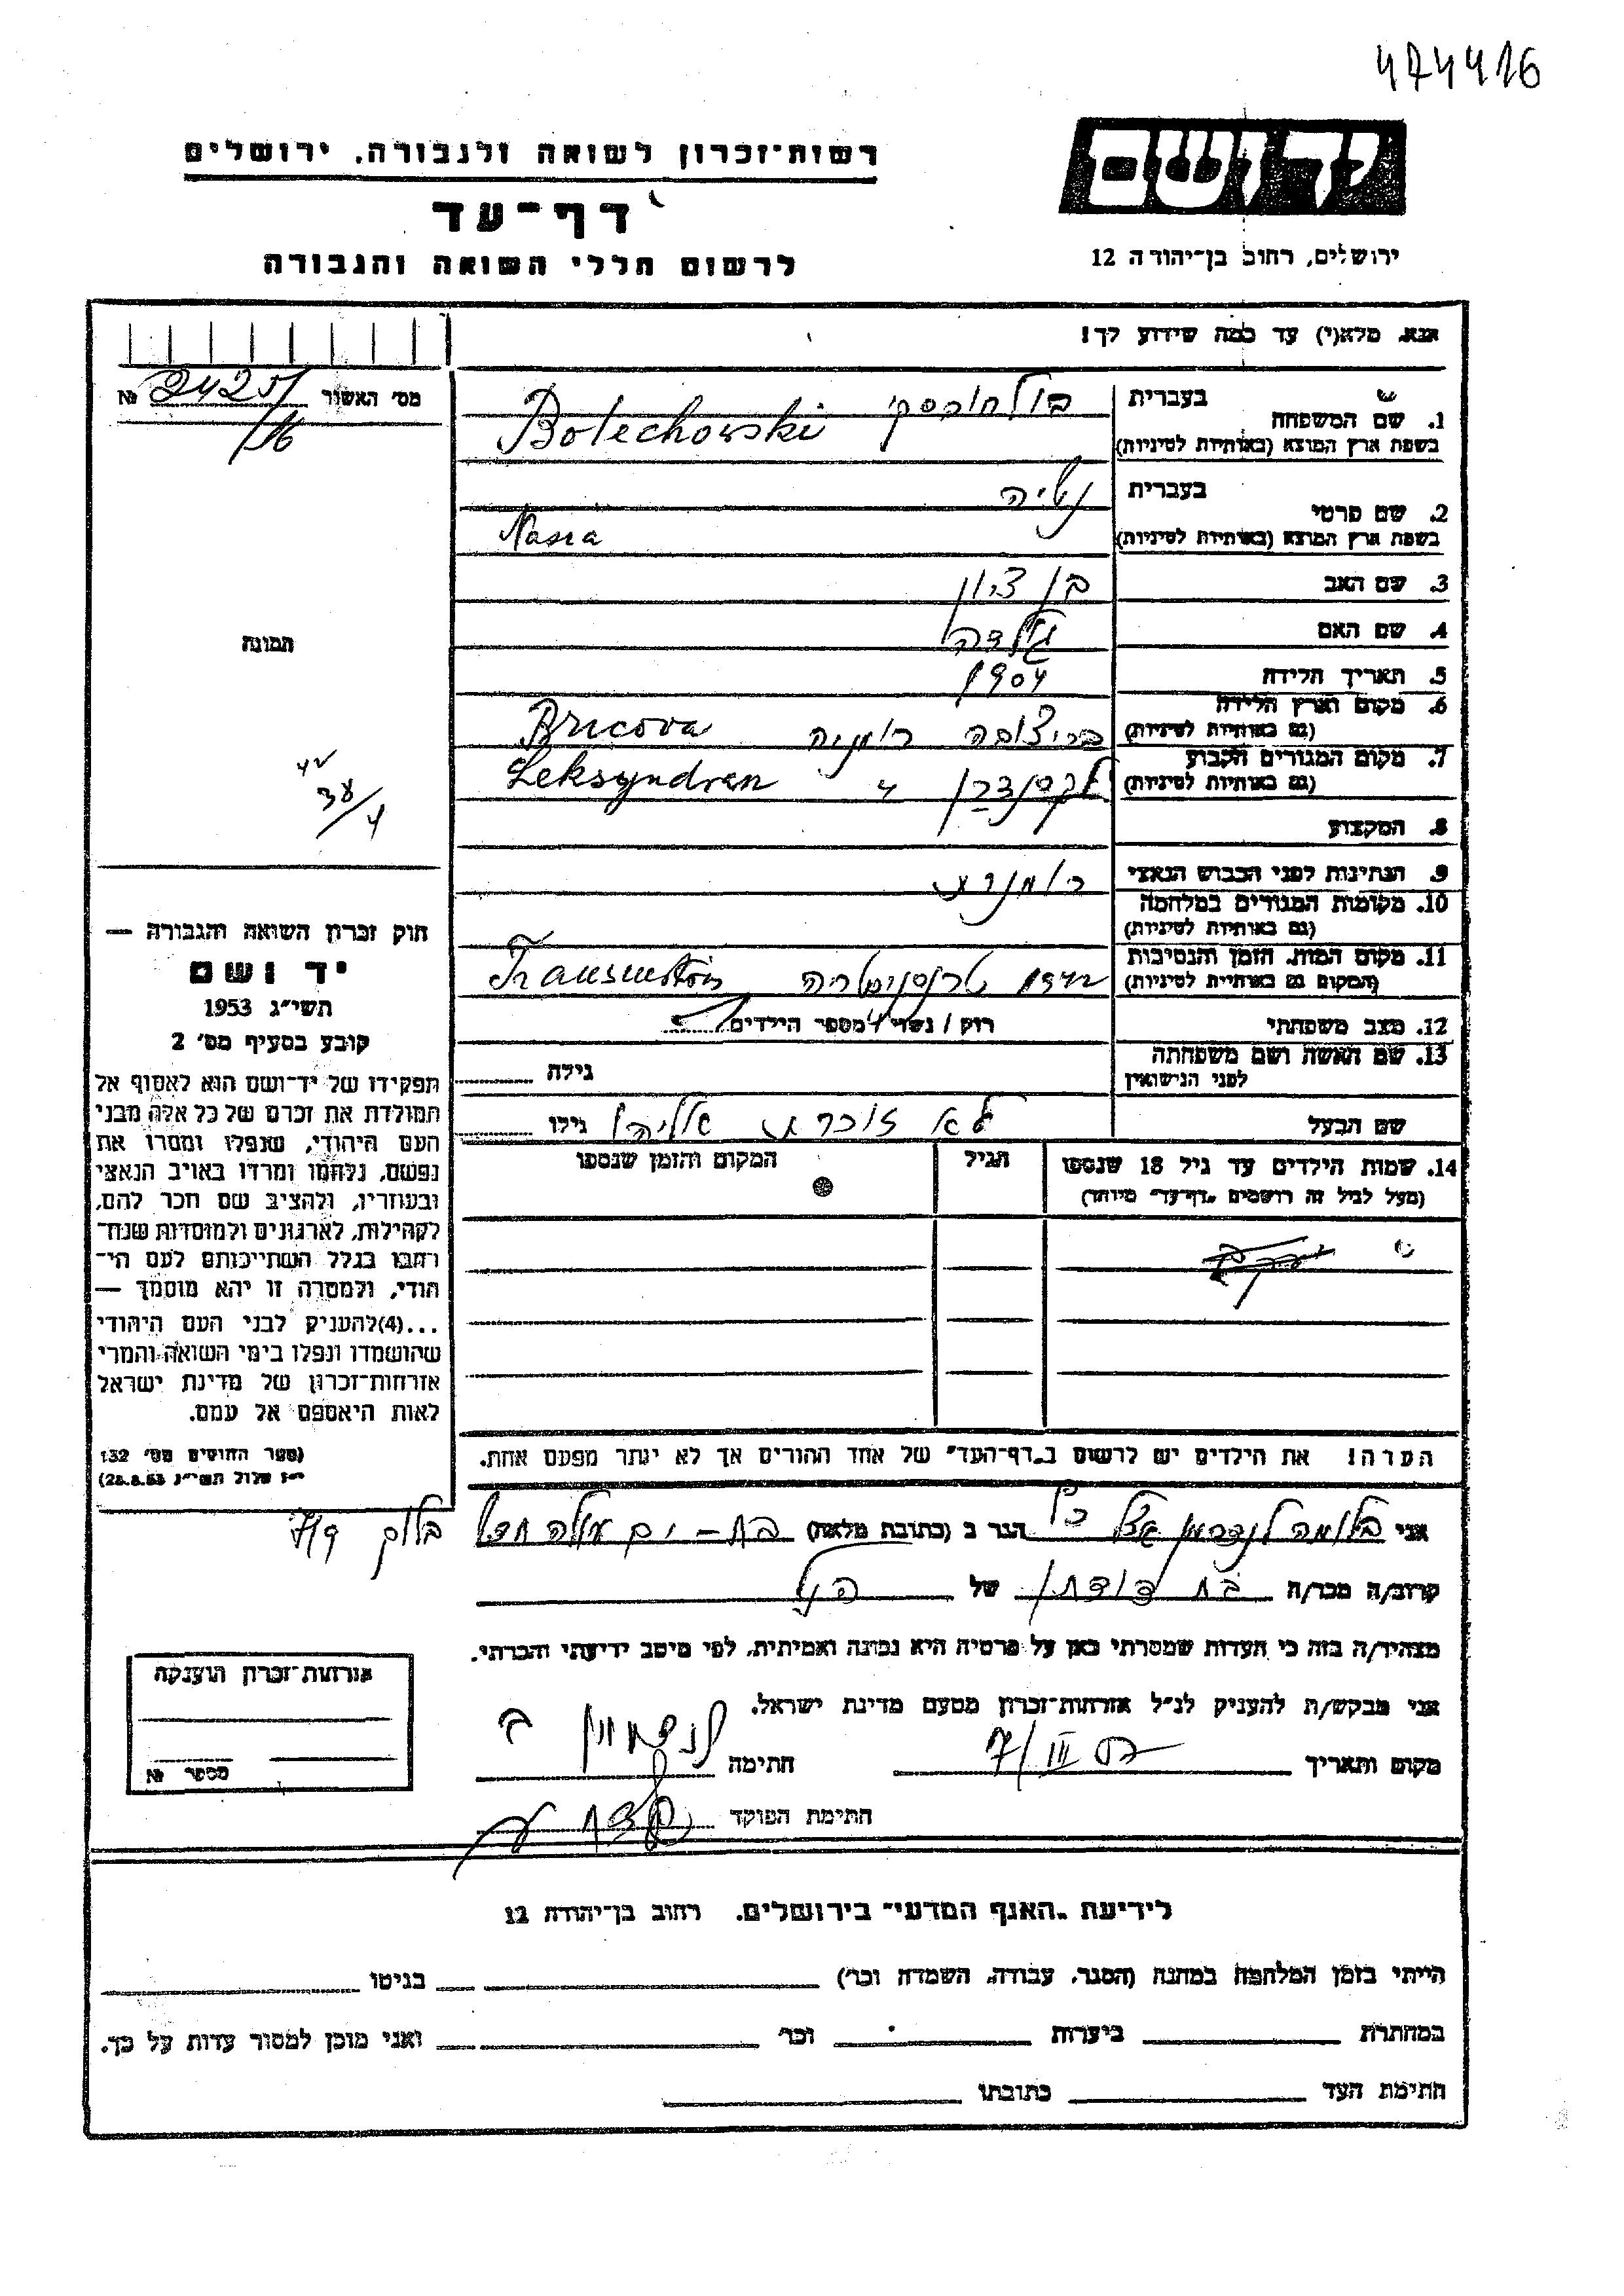 474416
יד ושם
רשות־זכרון לשואה ולגבורה, ירושלים
דף־עד
לרשום חללי השואה והגבורה
ירושלים, רחוב בן־יהודה 12
אנא, מלא(י) עד כמה שידוע לך!
מס' האשור № 2425/16
1. שם המשפחה
בעברית בולחובסקי
בשפת ארץ המוצא (באותיות לטיניות) Bolechowski
2. שם פרטי
בעברית
בשפת ארץ המוצא (באותיות לטיניות)
3. שם האב בן ציון
4. שם האם גולדה
5. תאריך הלידה 1904
6. מקום וארץ הלידה
(גם באותיות לטיניות) בריצ'ובה רומניה Bricova
7. מקום המגורים הקבוע
(גם באותיות לטיניות) Leksyndren
8. המקצוע
9. הנתינות לפני הכבוש הנאצי
10. מקומות המגורים במלחמה
(גם באותיות לטיניות)
11. מקום המות, הזמן והנסיבות
(המקום גם באותיות לטיניות) 1942 טרנסניסטריה
12. מצב משפחתי רוק / נשוי / מספר הילדים
13. שם האשה ושם משפחתה
לפני הנישואין גילה
שם הבעל לא זוכרת גילו
14. שמות הילדים עד גיל 18 שנספו
(מעל לגיל זה רושמים „דף־עד" מיוחד)
הגיל
המקום והזמן שנספו
הערה! את הילדים יש לרשום ב„דף־העד" של אחד ההורים אך לא יותר מפעם אחת.
תמונה
42
38/4
חוק זכרון השואה והגבורה —
יד ושם
תשי"ג 1953
קובע בסעיף מס' 2
תפקידו של יד־ושם הוא לאסוף אל
המולדת את זכרם של כל אלה מבני
העם היהודי, שנפלו ומסרו את
נפשם, נלחמו ומרדו באויב הנאצי
ובעוזריו, ולהציב שם וזכר להם,
לקהילות, לארגונים ולמוסדות שנח־
רבו בגלל השתייכותם לעם הי־
הודי, ולמטרה זו יהא מוסמך —
...(4)להעניק לבני העם היהודי
שהושמדו ונפלו בימי השואה והמרי
אזרחות־זכרון של מדינת ישראל
לאות היאספם אל עמם.
(ספר החוקים מס' 132
י"ז אלול תשי"ג 28.8.53)
אני בלומה לנדסמן הגר ב (כתובת מלאה) בת-ים עולה חדש בלוק
קרוב/ה מכר/ה בת דודתו של הנ"ל
מצהיר/ה בזה כי העדות שמסרתי כאן על פרטיה היא נכונה ואמיתית, לפי מיטב ידיעתי והכרתי.
אני מבקש/ת להעניק לנ"ל אזרחות־זכרון מטעם מדינת ישראל.
מקום ותאריך 7/III
חתימה ב
חתימת הפוקד
אזרחות־זכרון הוענקה
מספר №
לידיעת „האגף המדעי" בירושלים. רחוב בן־יהודה 12
הייתי בזמן המלחמה במחנה (הסגר, עבודה, השמדה וכו') בגיטו
במחתרת ביערות וכו' ואני מוכן למסור עדות על כך.
חתימת העד כתובתו